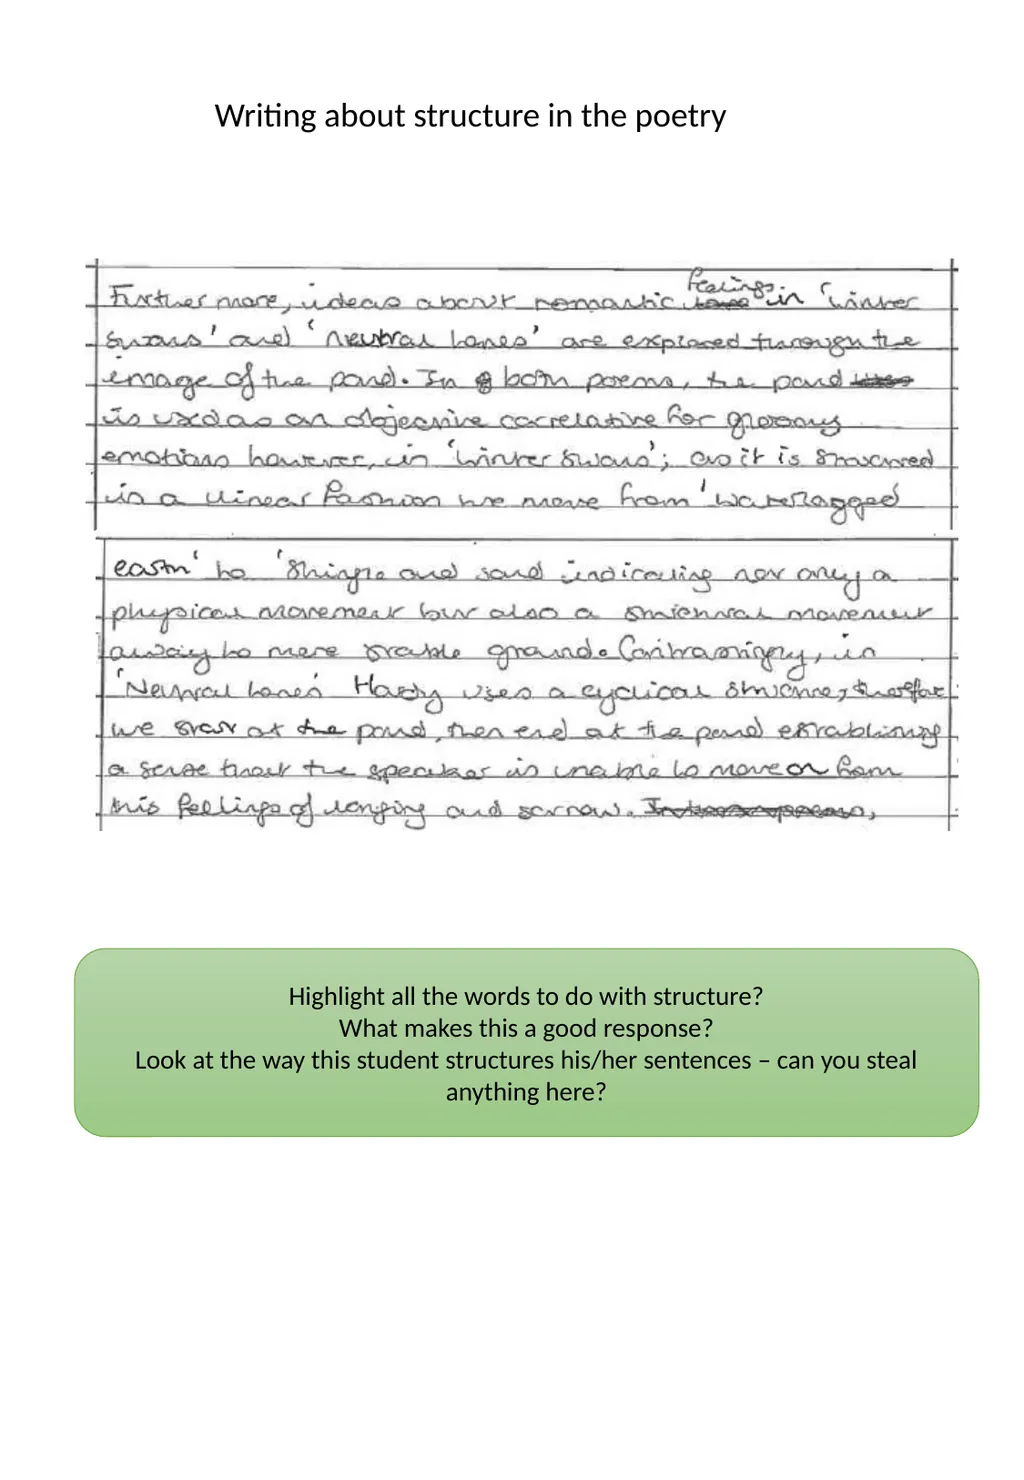 Writing about structure in the poetry
Further more, ideas about romantic feelings in 'winter
swans' and 'neutral tones' are explored through the
image of the pond. In both poems, the pond
is used as an objective correlative for gloomy
emotions however, in 'winter swans'; as it is structured
in a linear fashion we move from 'waterlogged
earth' to 'shingle and sand indicating not only a
physical movement but also a structural movement
away to more stable ground. Contrastingly, in
'Neutral tones' Hardy uses a cyclical structure, therefore
we start at the pond, then end at the pond establishing
a sense that the speaker is unable to move on from
his feelings of longing and sorrow.
Highlight all the words to do with structure?
What makes this a good response?
Look at the way this student structures his/her sentences – can you steal
anything here?